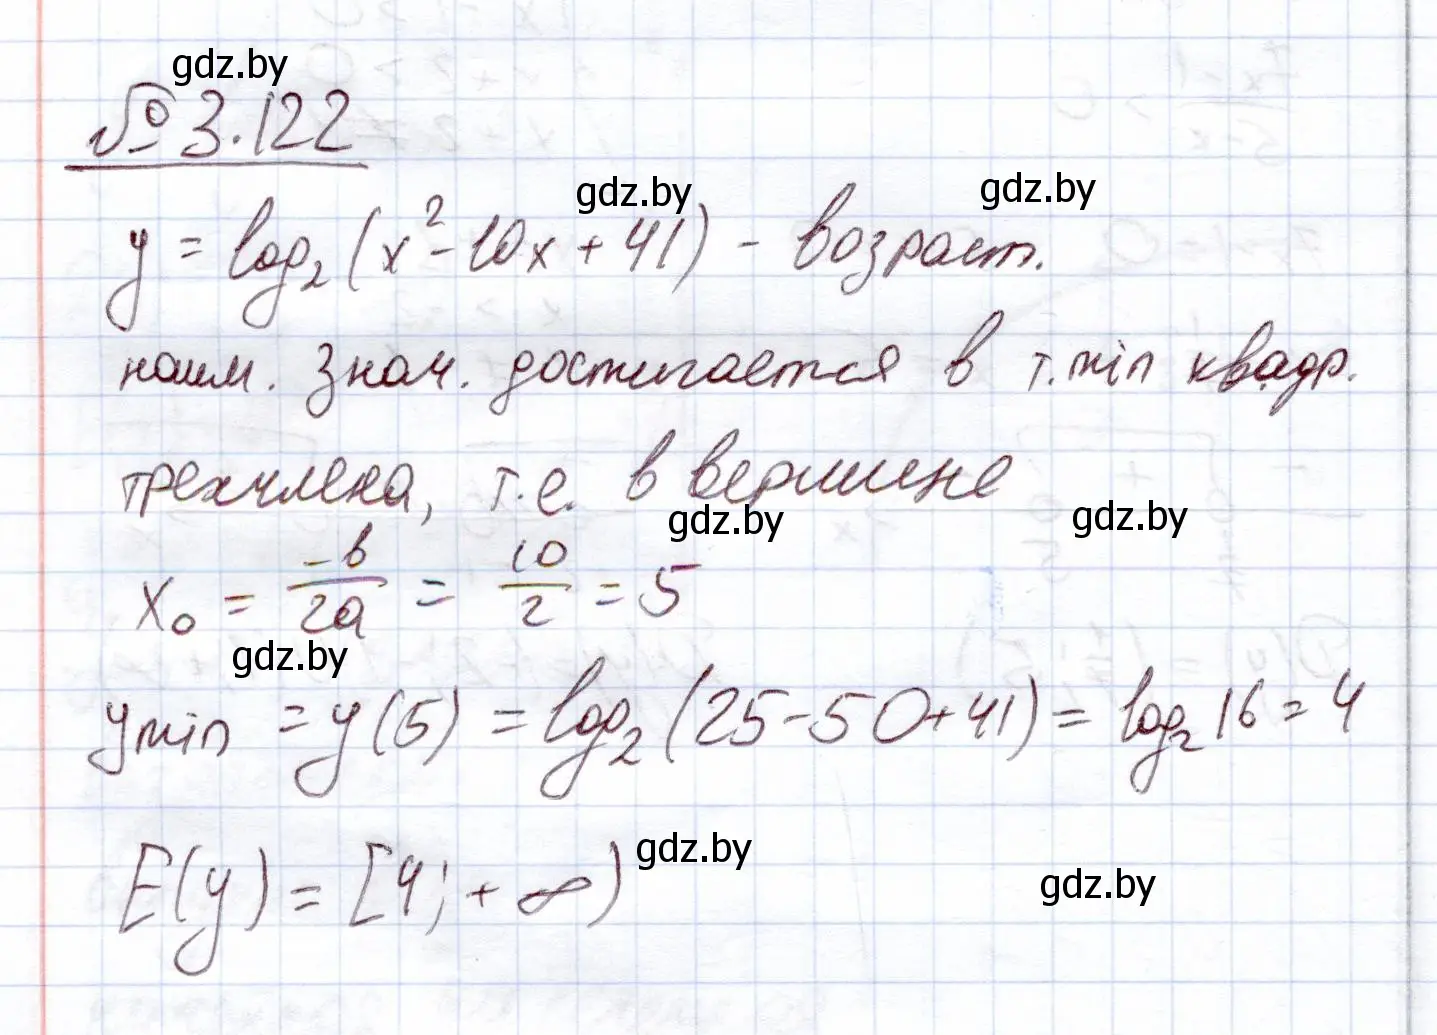 gdz.by
№ 3.122
gdz.by gdz.by
y = log₂(x² - 10x + 41) - возраст.
наим. знач. достигается в т. min квадр.
трехчлена, т.е. в вершине
gdz.by gdz.by
x₀ = -b/2a = 10/2 = 5
gdz.by
y min = y(5) = log₂(25-50+41) = log₂16 = 4
gdz.by
E(y) = [4; +∞)
gdz.by